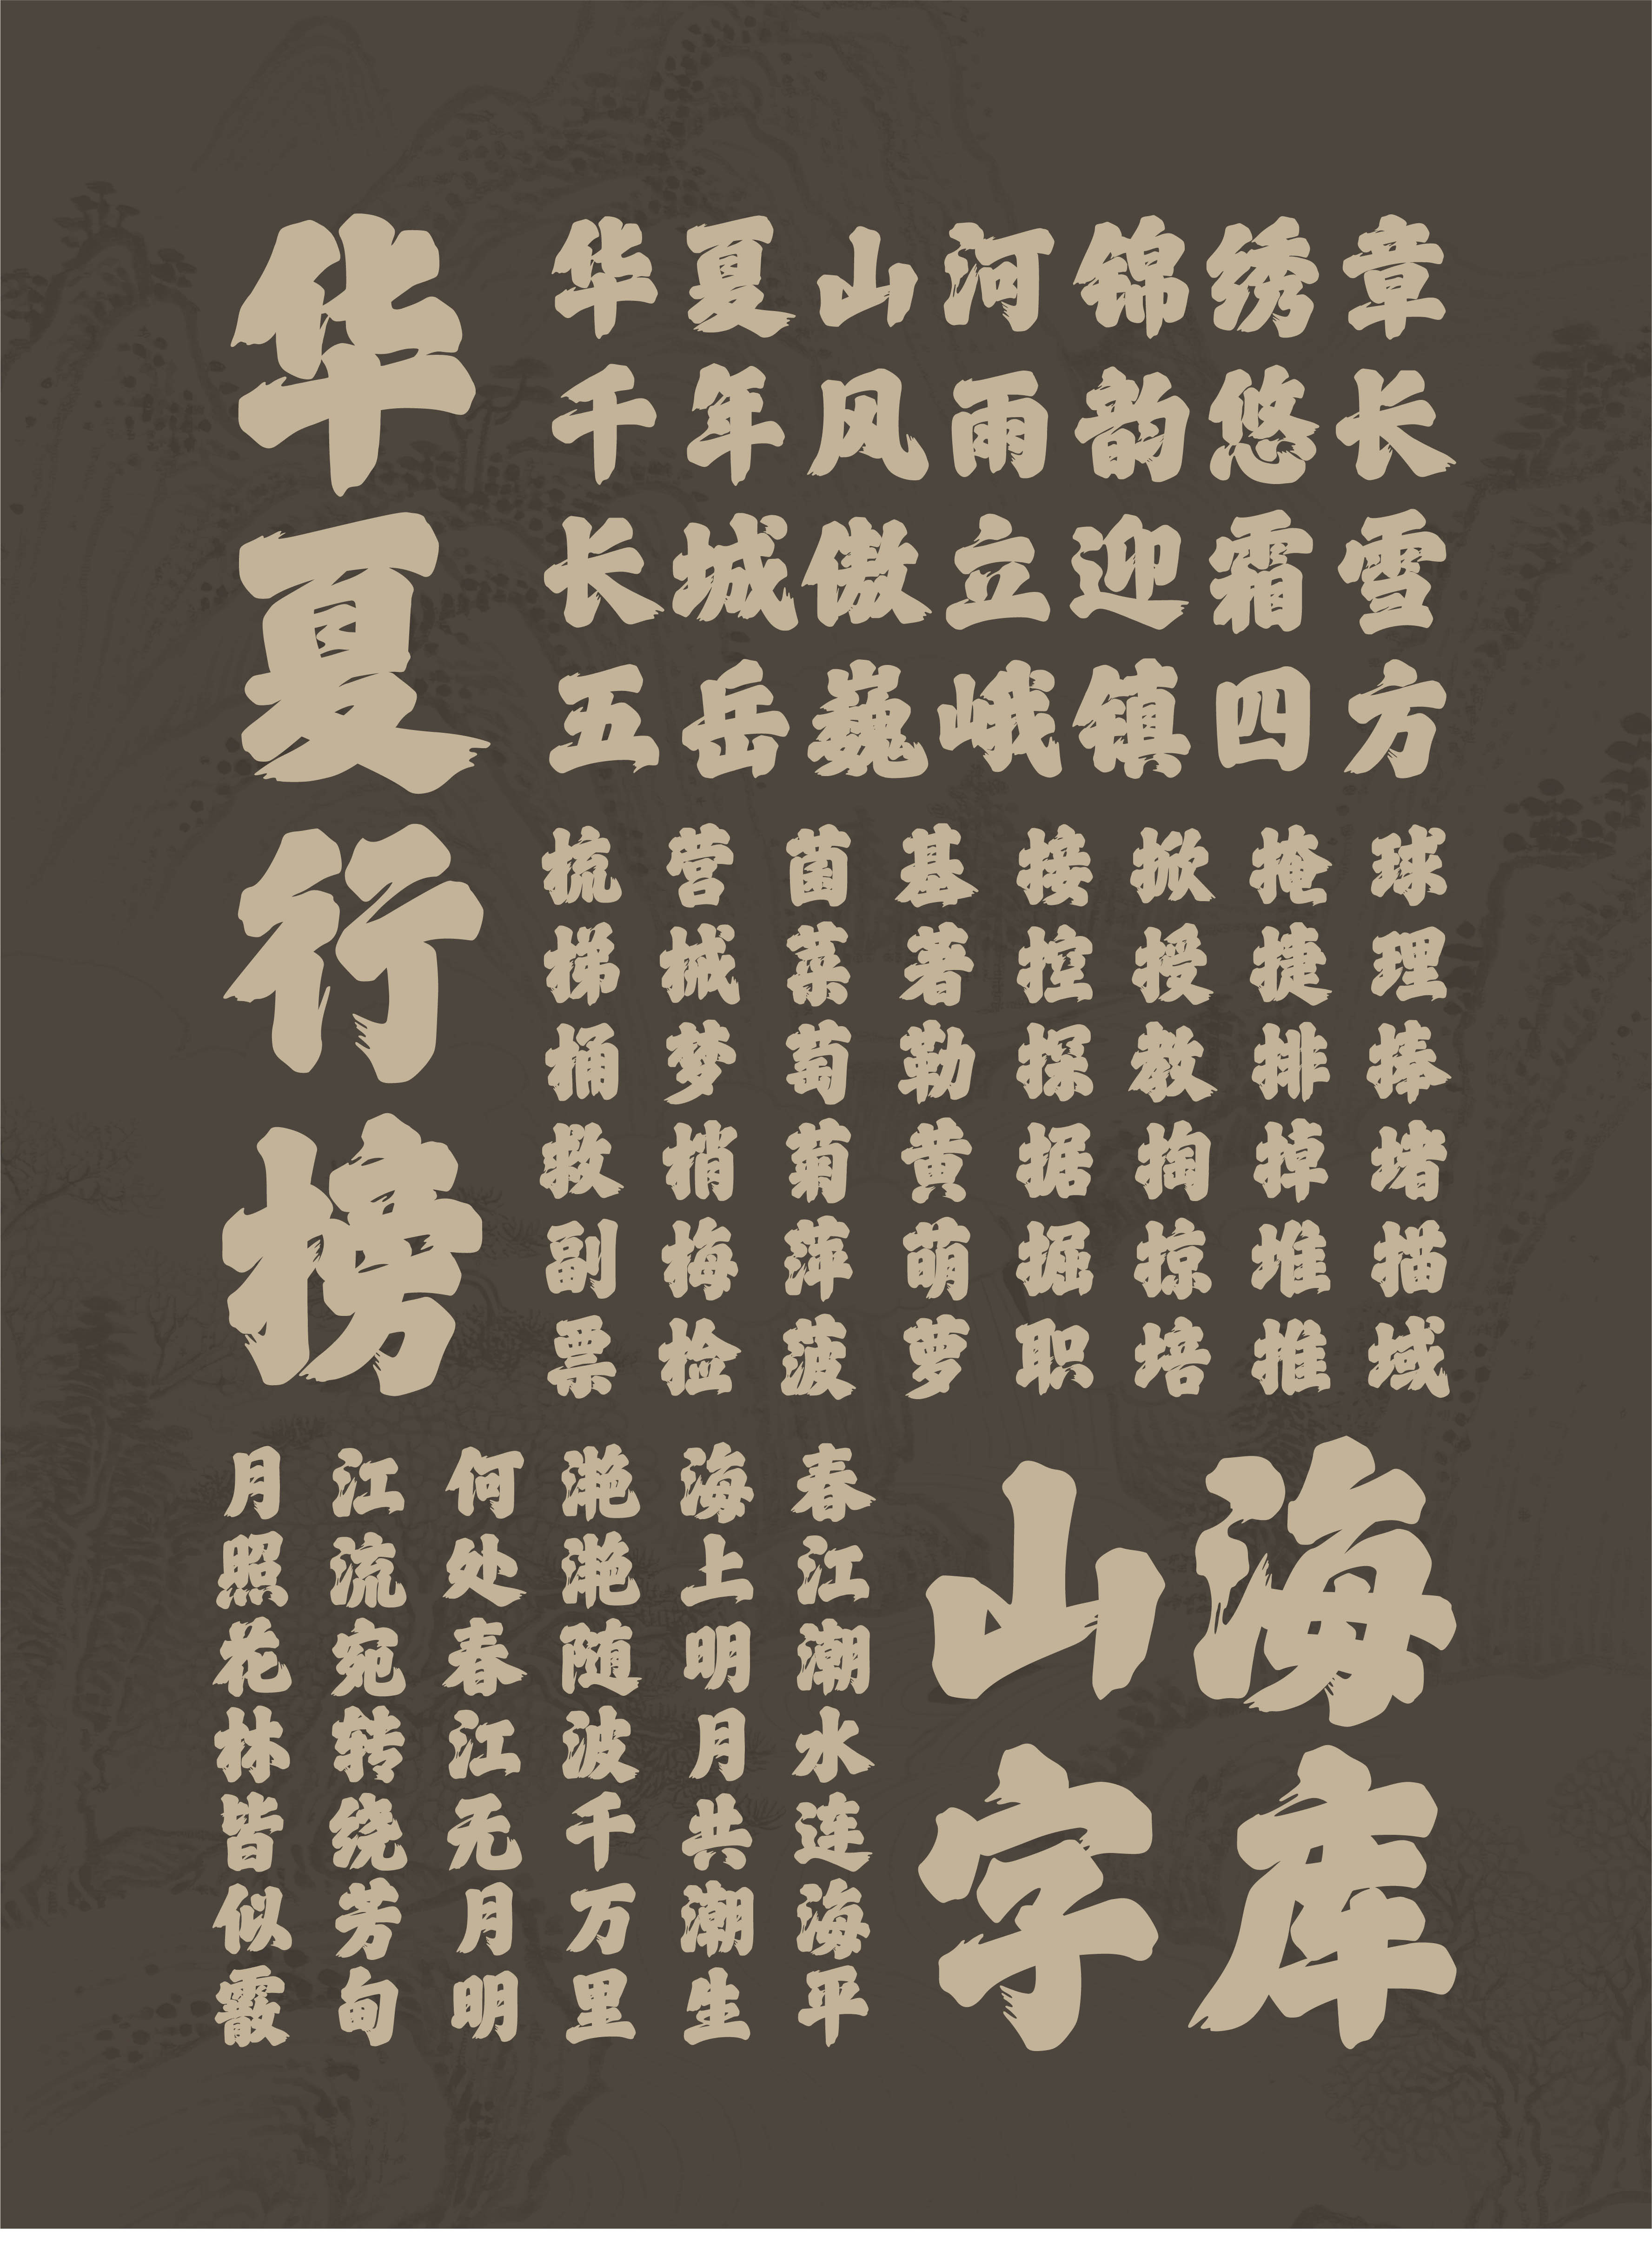 华夏行榜
华夏山河锦绣章
千年风雨韵悠长
长城傲立迎霜雪
五岳巍峨镇四方
球理捧堵描域
掩捷排掉堆推
掀授教掏掠培
接控探据掘职
基著勒黄萌萝
菌菜萄菊萍菠
营械梦梢梅检
梳梯桶救副票
山海
字库
春江潮水连海平
海上明月共潮生
滟滟随波千万里
何处春江无月明
江流宛转绕芳甸
月照花林皆似霰